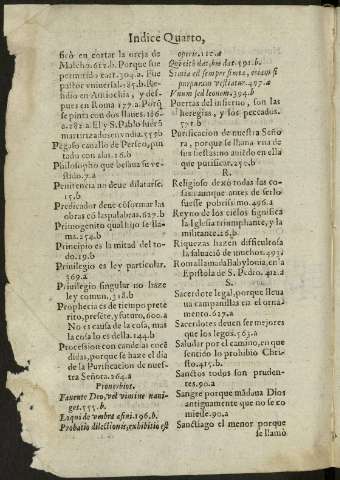 Indice Quarto,
ficò en cortar la oreja de
Malcho. 612.b. Porque fue
permitido cart. 304.a. Fue
pastor vniuersal. 85.b. Re-
sidio en Antiochia, y des-
pues en Roma 177.a. Porq̃
se pinta con dos llaues.
a. 282.a. El y S. Pablo fuerõ
martirizados en vn dia. 555 b
Pegaso cauallo de Perseo, pin
tado con alas. 16.b
Philosopho que besaua se ve-
stido. 7.a
Penitencia no deue dilatarse.
15.b
Predicador deue cõformar las
obras cõ las palabras. 627.b
Primogenito qual hijo se lla-
ma. 254.b
Principio es la mitad del to-
do. 19.b
Priuilegio es ley particular.
369.a
Priuilegio singular no haze
ley comun. 318.b
Prophecia es de tiempo prete
rito, presẽte, y futuro, 600.a
No es causa de la cosa, mas
la cosa lo es della. 144.b
Procession con candelas encẽ
didas, porque se haze el dia
de la Purificacion de nues-
tra Señora. 264.a
Prouerbios.
Fauente Deo, vel vimine naui-
ges. 555.b.
Loqui de vmbra asini. 196.b.
Probatio dilectionis, exhibitio est
operis. 112.a
Qui citò dat, bis dat. 591.b.
Simia est semper simia, etiam si
purpuram vestiatur. 497.a
Vnum sed leonem. 394.b
Puertas del infierno, son las
heregias, y los peccados.
571.b.
Purificacion de nuestra Seño
ra, porque se llama vna de
sus fiestas no auiẽdo en ella
que purificar. 250.b.
R.
Religioso dexò todas las co-
sas aunque antes de serlo
fuesse pobrissimo. 496.a
Reyno de los cielos significa
la Iglesia triumphante, y la
militante. 16.b
Riquezas hazen dificultosa
la saluaciõ de muchos. 493.
Roma llamada Babylonia, en la
Epistola de S. Pedro. 412.a
S.
Sacerdote legal, porque lleua
ua campanillas en el orna-
mento. 627.a
Sacerdotes deuen ser mejores
que los legos. 563.a
Saludar por el camino, en que
sentido lo prohibio Chri-
sto. 415.b.
Sanctos todos son pruden-
tes. 90.a
Sangre porque mãdaua Dios
antiguamente que no se co
miesse. 90.a
Sanctiago el menor porque
se llamò